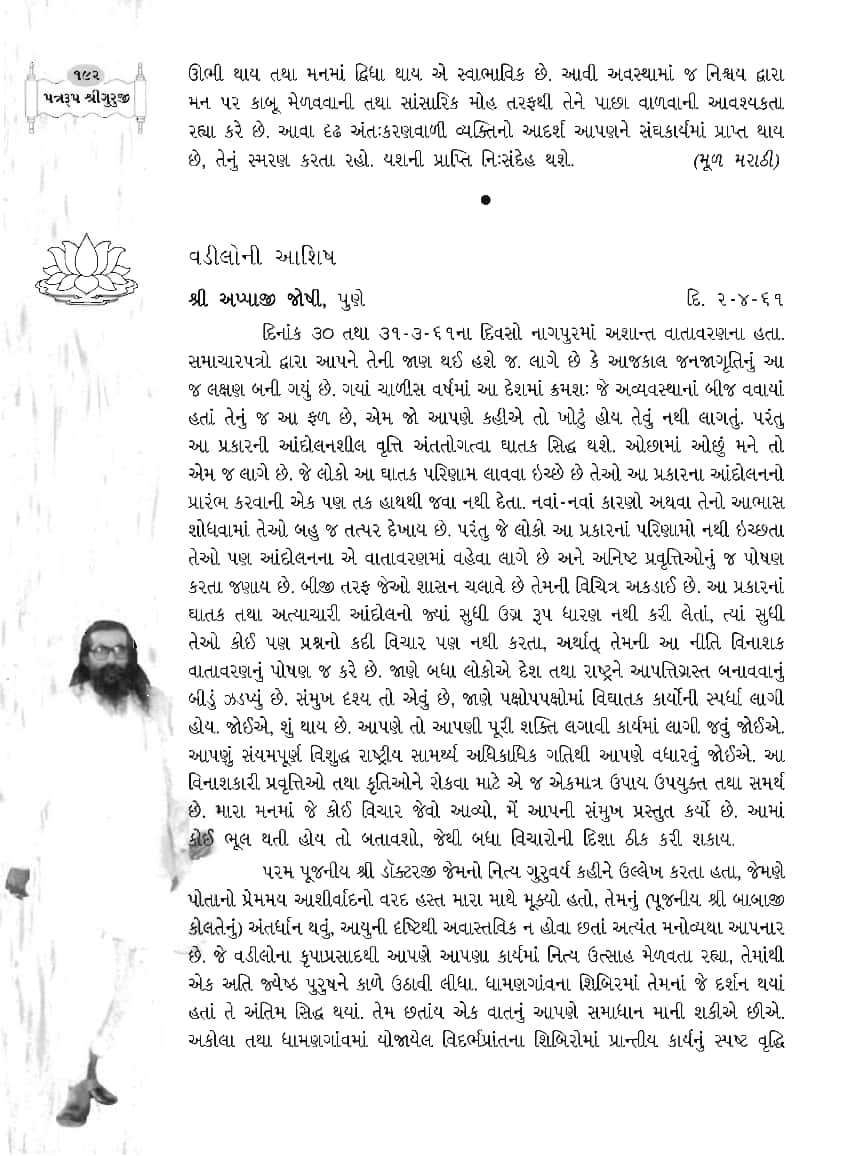 ૧૯૨
પત્રરૂપ શ્રીગુરુજી
ઊભી થાય તથા મનમાં દ્વિધા થાય એ સ્વાભાવિક છે. આવી અવસ્થામાં જ નિશ્ચય દ્વારા
મન પર કાબૂ મેળવવાની તથા સાંસારિક મોહ તરફથી તેને પાછા વાળવાની આવશ્યકતા
રહ્યા કરે છે. આવા દૃઢ અંતઃકરણવાળી વ્યક્તિનો આદર્શ આપણને સંઘકાર્યમાં પ્રાપ્ત થાય
છે, તેનું સ્મરણ કરતા રહો. યશની પ્રાપ્તિ નિઃસંદેહ થશે. (મૂળ મરાઠી)
•
વડીલોની આશિષ
શ્રી અપ્પાજી જોષી, પુણે દિ. ૨-૪-૬૧
દિનાંક ૩૦ તથા ૩૧-૩-૬૧ના દિવસો નાગપુરમાં અશાન્ત વાતાવરણના હતા.
સમાચારપત્રો દ્વારા આપને તેની જાણ થઈ હશે જ. લાગે છે કે આજકાલ જનજાગૃતિનું આ
જ લક્ષણ બની ગયું છે. ગયાં ચાળીસ વર્ષમાં આ દેશમાં ક્રમશઃ જે અવ્યવસ્થાનાં બીજ વવાયાં
હતાં તેનું જ આ ફળ છે, એમ જો આપણે કહીએ તો ખોટું હોય તેવું નથી લાગતું. પરંતુ
આ પ્રકારની આંદોલનશીલ વૃત્તિ અંતતોગત્વા ઘાતક સિદ્ધ થશે. ઓછામાં ઓછું મને તો
એમ જ લાગે છે. જે લોકો આ ઘાતક પરિણામ લાવવા ઇચ્છે છે તેઓ આ પ્રકારના આંદોલનનો
પ્રારંભ કરવાની એક પણ તક હાથથી જવા નથી દેતા. નવાં-નવાં કારણો અથવા તેનો આભાસ
શોધવામાં તેઓ બહુ જ તત્પર દેખાય છે. પરંતુ જે લોકો આ પ્રકારનાં પરિણામો નથી ઇચ્છતા
તેઓ પણ આંદોલનના એ વાતાવરણમાં વહેવા લાગે છે અને અનિષ્ટ પ્રવૃત્તિઓનું જ પોષણ
કરતા જણાય છે. બીજી તરફ જેઓ શાસન ચલાવે છે તેમની વિચિત્ર અકડાઈ છે. આ પ્રકારનાં
ઘાતક તથા અત્યાચારી આંદોલનો જ્યાં સુધી ઉગ્ર રૂપ ધારણ નથી કરી લેતાં, ત્યાં સુધી
તેઓ કોઈ પણ પ્રશ્નનો કદી વિચાર પણ નથી કરતા, અર્થાત્ તેમની આ નીતિ વિનાશક
વાતાવરણનું પોષણ જ કરે છે. જાણે બધા લોકોએ દેશ તથા રાષ્ટ્રને આપત્તિગ્રસ્ત બનાવવાનું
બીડું ઝડપ્યું છે. સંમુખ દૃશ્ય તો એવું છે, જાણે પક્ષોપપક્ષોમાં વિઘાતક કાર્યોની સ્પર્ધા લાગી
હોય. જોઈએ, શું થાય છે. આપણે તો આપણી પૂરી શક્તિ લગાવી કાર્યમાં લાગી જવું જોઈએ.
આપણું સંયમપૂર્ણ વિશુદ્ધ રાષ્ટ્રીય સામર્થ્ય અધિકાધિક ગતિથી આપણે વધારવું જોઈએ. આ
વિનાશકારી પ્રવૃત્તિઓ તથા કૃતિઓને રોકવા માટે એ જ એકમાત્ર ઉપાય ઉપયુક્ત તથા સમર્થ
છે. મારા મનમાં જે કોઈ વિચાર જેવો આવ્યો, મેં આપની સંમુખ પ્રસ્તુત કર્યો છે. આમાં
કોઈ ભૂલ થતી હોય તો બતાવશો, જેથી બધા વિચારોની દિશા ઠીક કરી શકાય.
પરમ પૂજનીય શ્રી ડૉક્ટરજી જેમનો નિત્ય ગુરુવર્ય કહીને ઉલ્લેખ કરતા હતા, જેમણે
પોતાનો પ્રેમમય આશીર્વાદનો વરદ હસ્ત મારા માથે મૂક્યો હતો, તેમનું (પૂજનીય શ્રી બાબાજી
કોલતેનું) અંતર્ધાન થવું, આયુની દૃષ્ટિથી અવાસ્તવિક ન હોવા છતાં અત્યંત મનોવ્યથા આપનાર
છે. જે વડીલોના કૃપાપ્રસાદથી આપણે આપણા કાર્યમાં નિત્ય ઉત્સાહ મેળવતા રહ્યા, તેમાંથી
એક અતિ જ્યેષ્ઠ પુરુષને કાળે ઉઠાવી લીધા. ધામણગાંવના શિબિરમાં તેમનાં જે દર્શન થયાં
હતાં તે અંતિમ સિદ્ધ થયાં. તેમ છતાંય એક વાતનું આપણે સમાધાન માની શકીએ છીએ.
અકોલા તથા ધામણગાંવમાં યોજાયેલ વિદર્ભપ્રાંતના શિબિરોમાં પ્રાન્તીય કાર્યનું સ્પષ્ટ વૃદ્ધિ